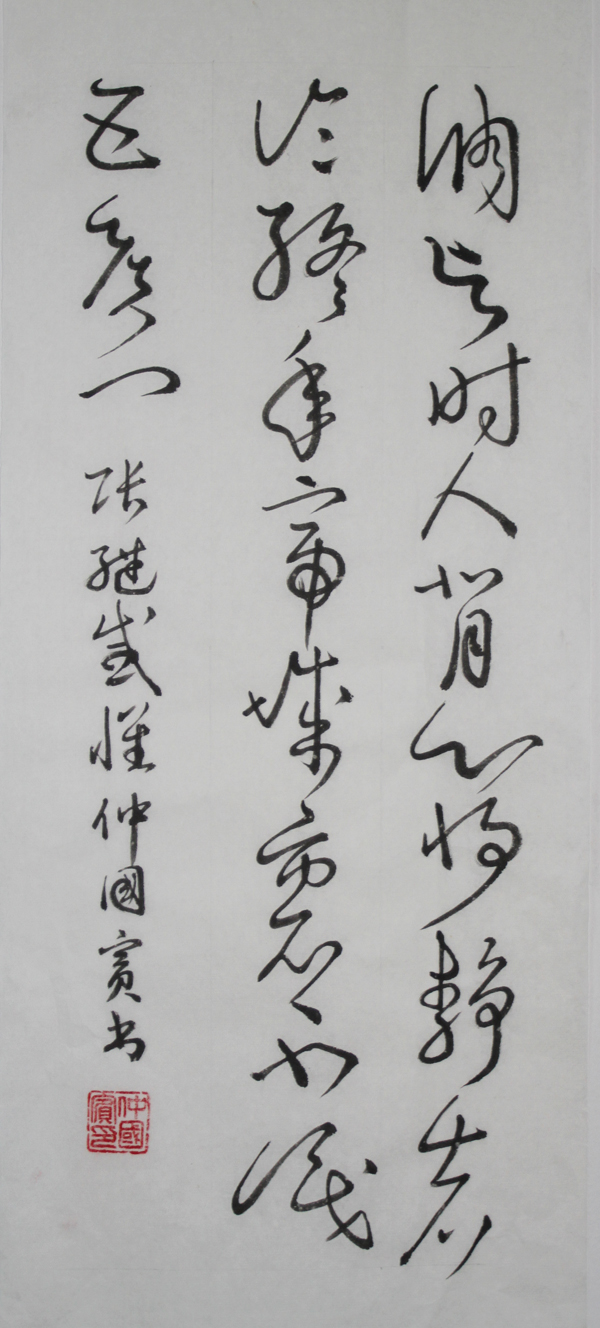 调与时人背心将静者
论终年帝城裏不识
五侯门 张继感怀仲國賓书
仲國賓印